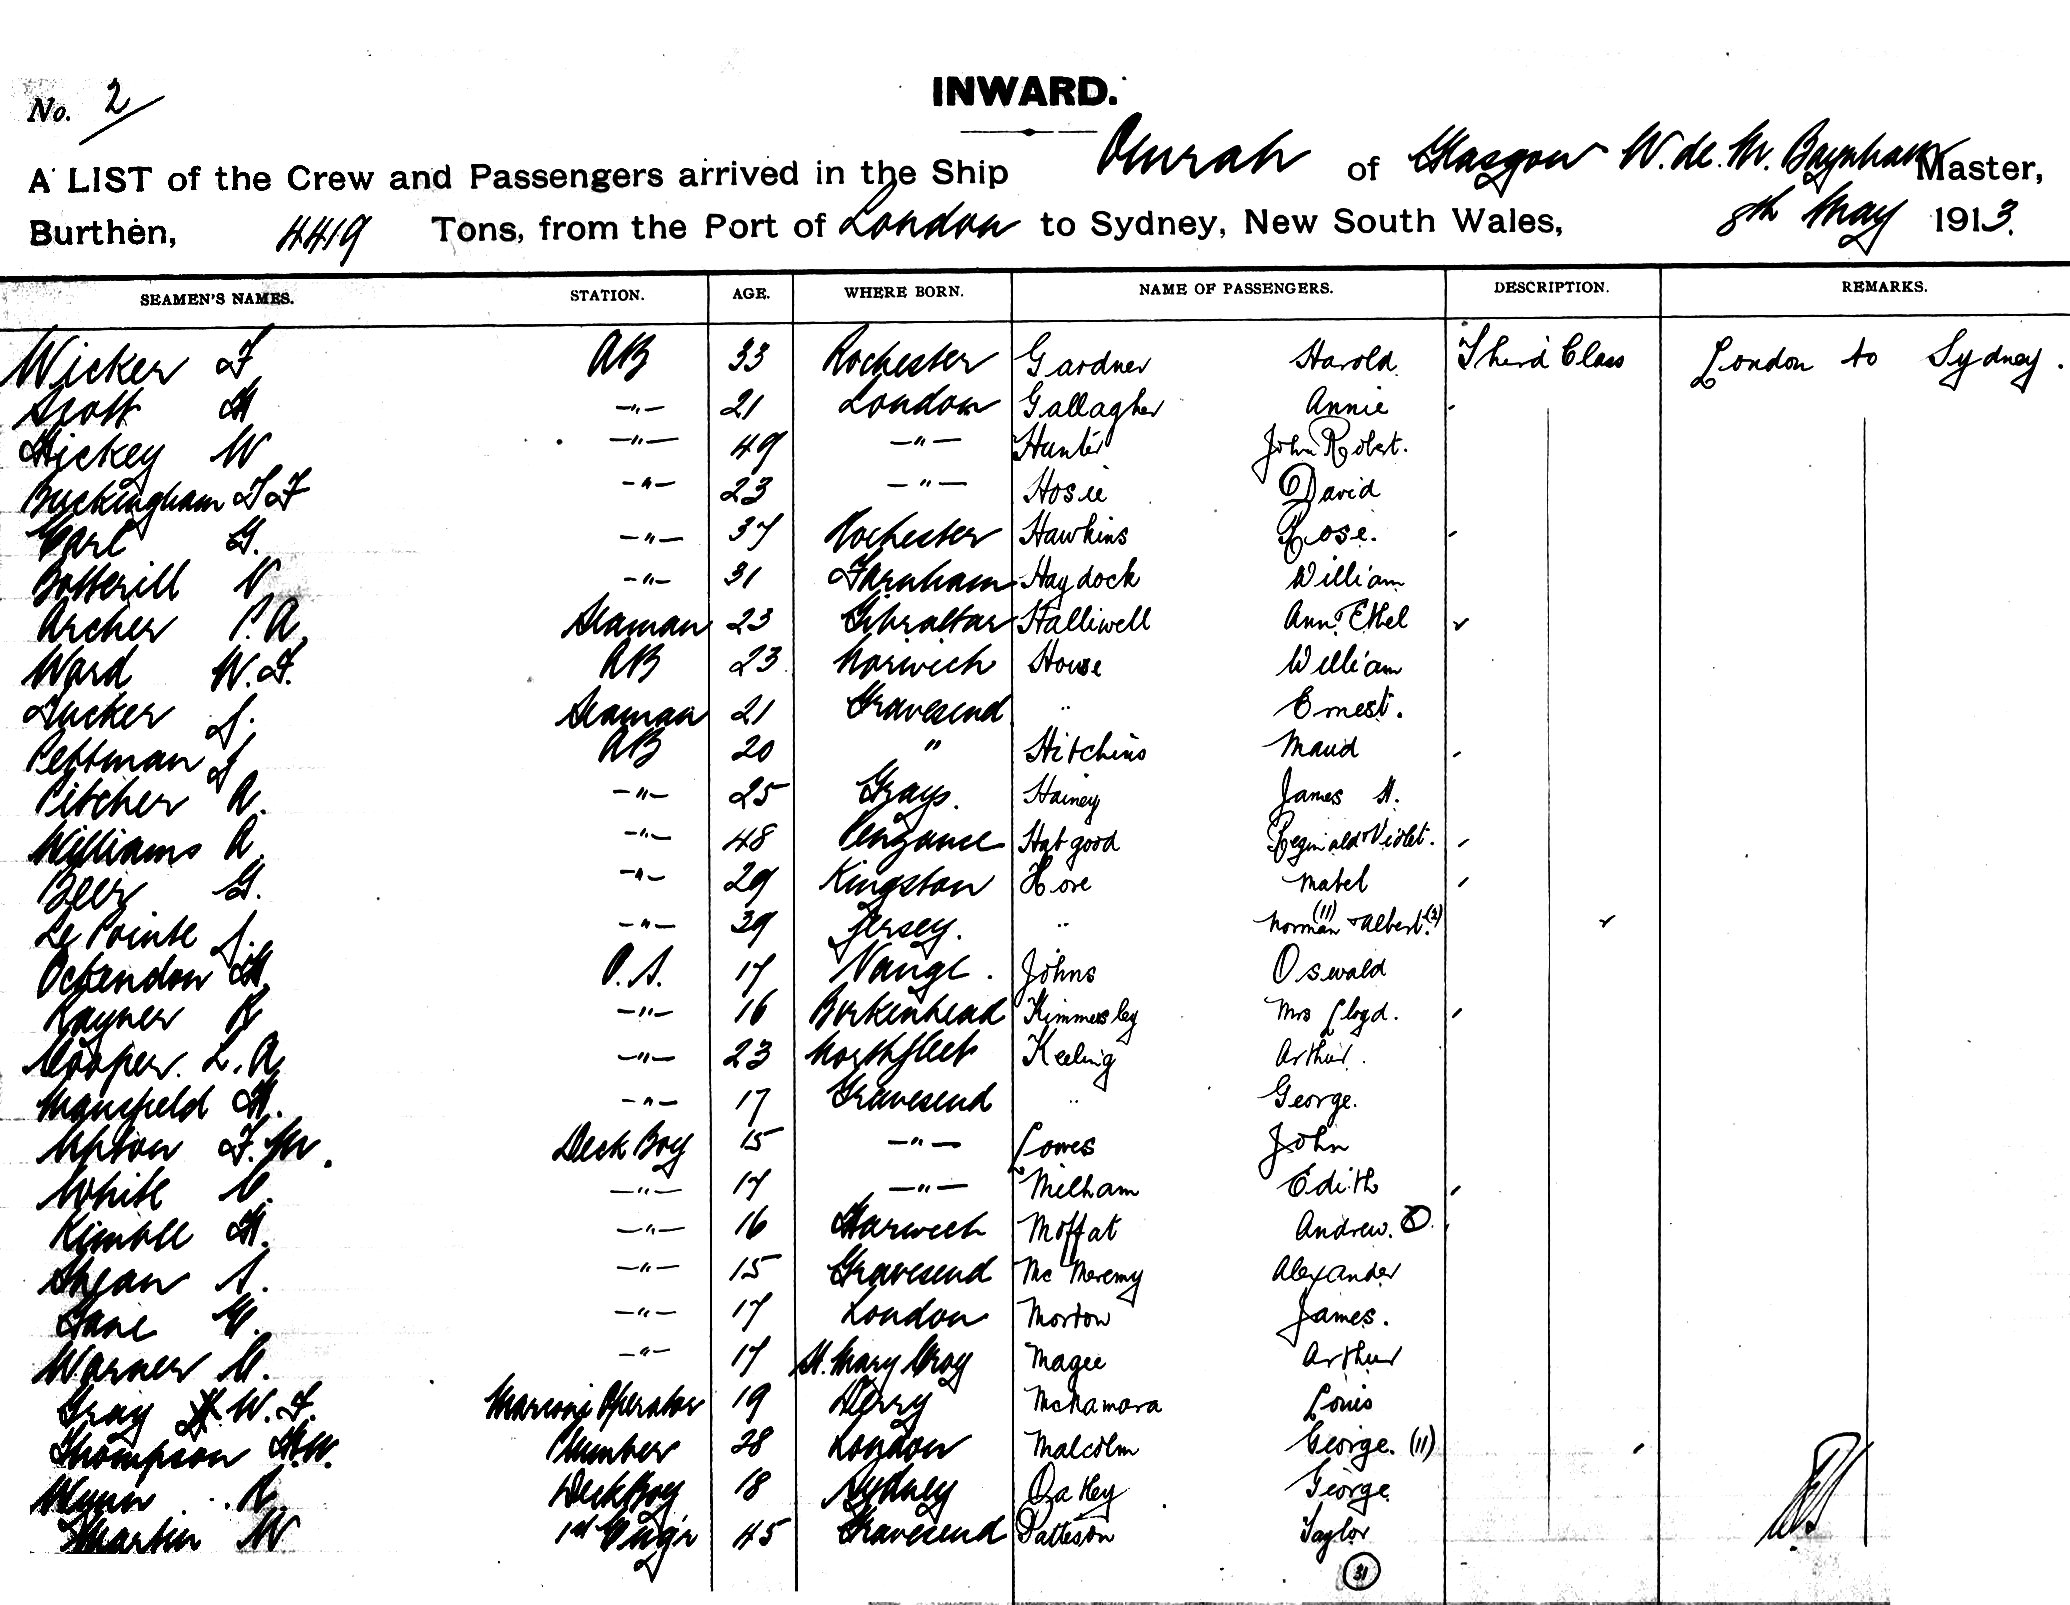 No. 2
INWARD.
A LIST of the Crew and Passengers arrived in the Ship Omrah of Glasgow W. de. M. Baynham Master,
Burthen, 4419 Tons, from the Port of London to Sydney, New South Wales, 8th May 1913.
SEAMEN'S NAMES. STATION. AGE. WHERE BORN. NAME OF PASSENGERS. DESCRIPTION. REMARKS.
Wicker F AB 33 Rochester Gardner Harold. Third Class London to Sydney.
Scott H -"- 21 London Gallagher Annie
Hickey W -"- 49 -"- Hunter John Robert.
Buckingham T F -"- 23 -"- Hosie David
Carl G. -"- 37 Rochester Hawkins Rose.
Botterill V -"- 31 Farnham Haydock William
Archer P. A. Seaman 23 Gibraltar Halliwell Ann Ethel
Ward W. F. AB 23 Norwich House William
Tucker J. Seaman 21 Gravesend " Ernest.
Pettman J AB 20 " Hitchins Maud
Pitcher A. -"- 25 Grays. Hainey James H.
Williams R -"- 48 Penzance Habgood Reginald Violet.
Beer G. -"- 29 Kingston Hore Mabel
Le Pointe J. -"- 39 Jersey. " Norman (11) & Albert. (2)
Ockendon H. O. S. 17 Vange. Johns Oswald
Rayner R -"- 16 Birkenhead Kimmersley Mrs Lloyd.
Cooper. L. A. -"- 23 Northfleet Keeling Arthur.
Mansfield H. -"- 17 Gravesend " George.
Upton F. M. Deck Boy 15 -"- Lowes John
White C. -"- 17 -"- Milham Edith
Kimble H. -"- 16 Harwich Moffat Andrew.
Shean S. -"- 15 Gravesend Mc Meremy Alexander
Lane E. -"- 17 London Morton James.
Warner C. -"- 17 St. Mary Cray Magee Arthur
Gray W. F. Marconi Operator 19 Derry McNamara Louis
Thompson H. W. Plumber 28 London Malcolm George. (11)
Munn R. Deck Boy 18 Sydney Oatley George
Martin W 1st Eng'r 45 Gravesend Patteson Taylor
31